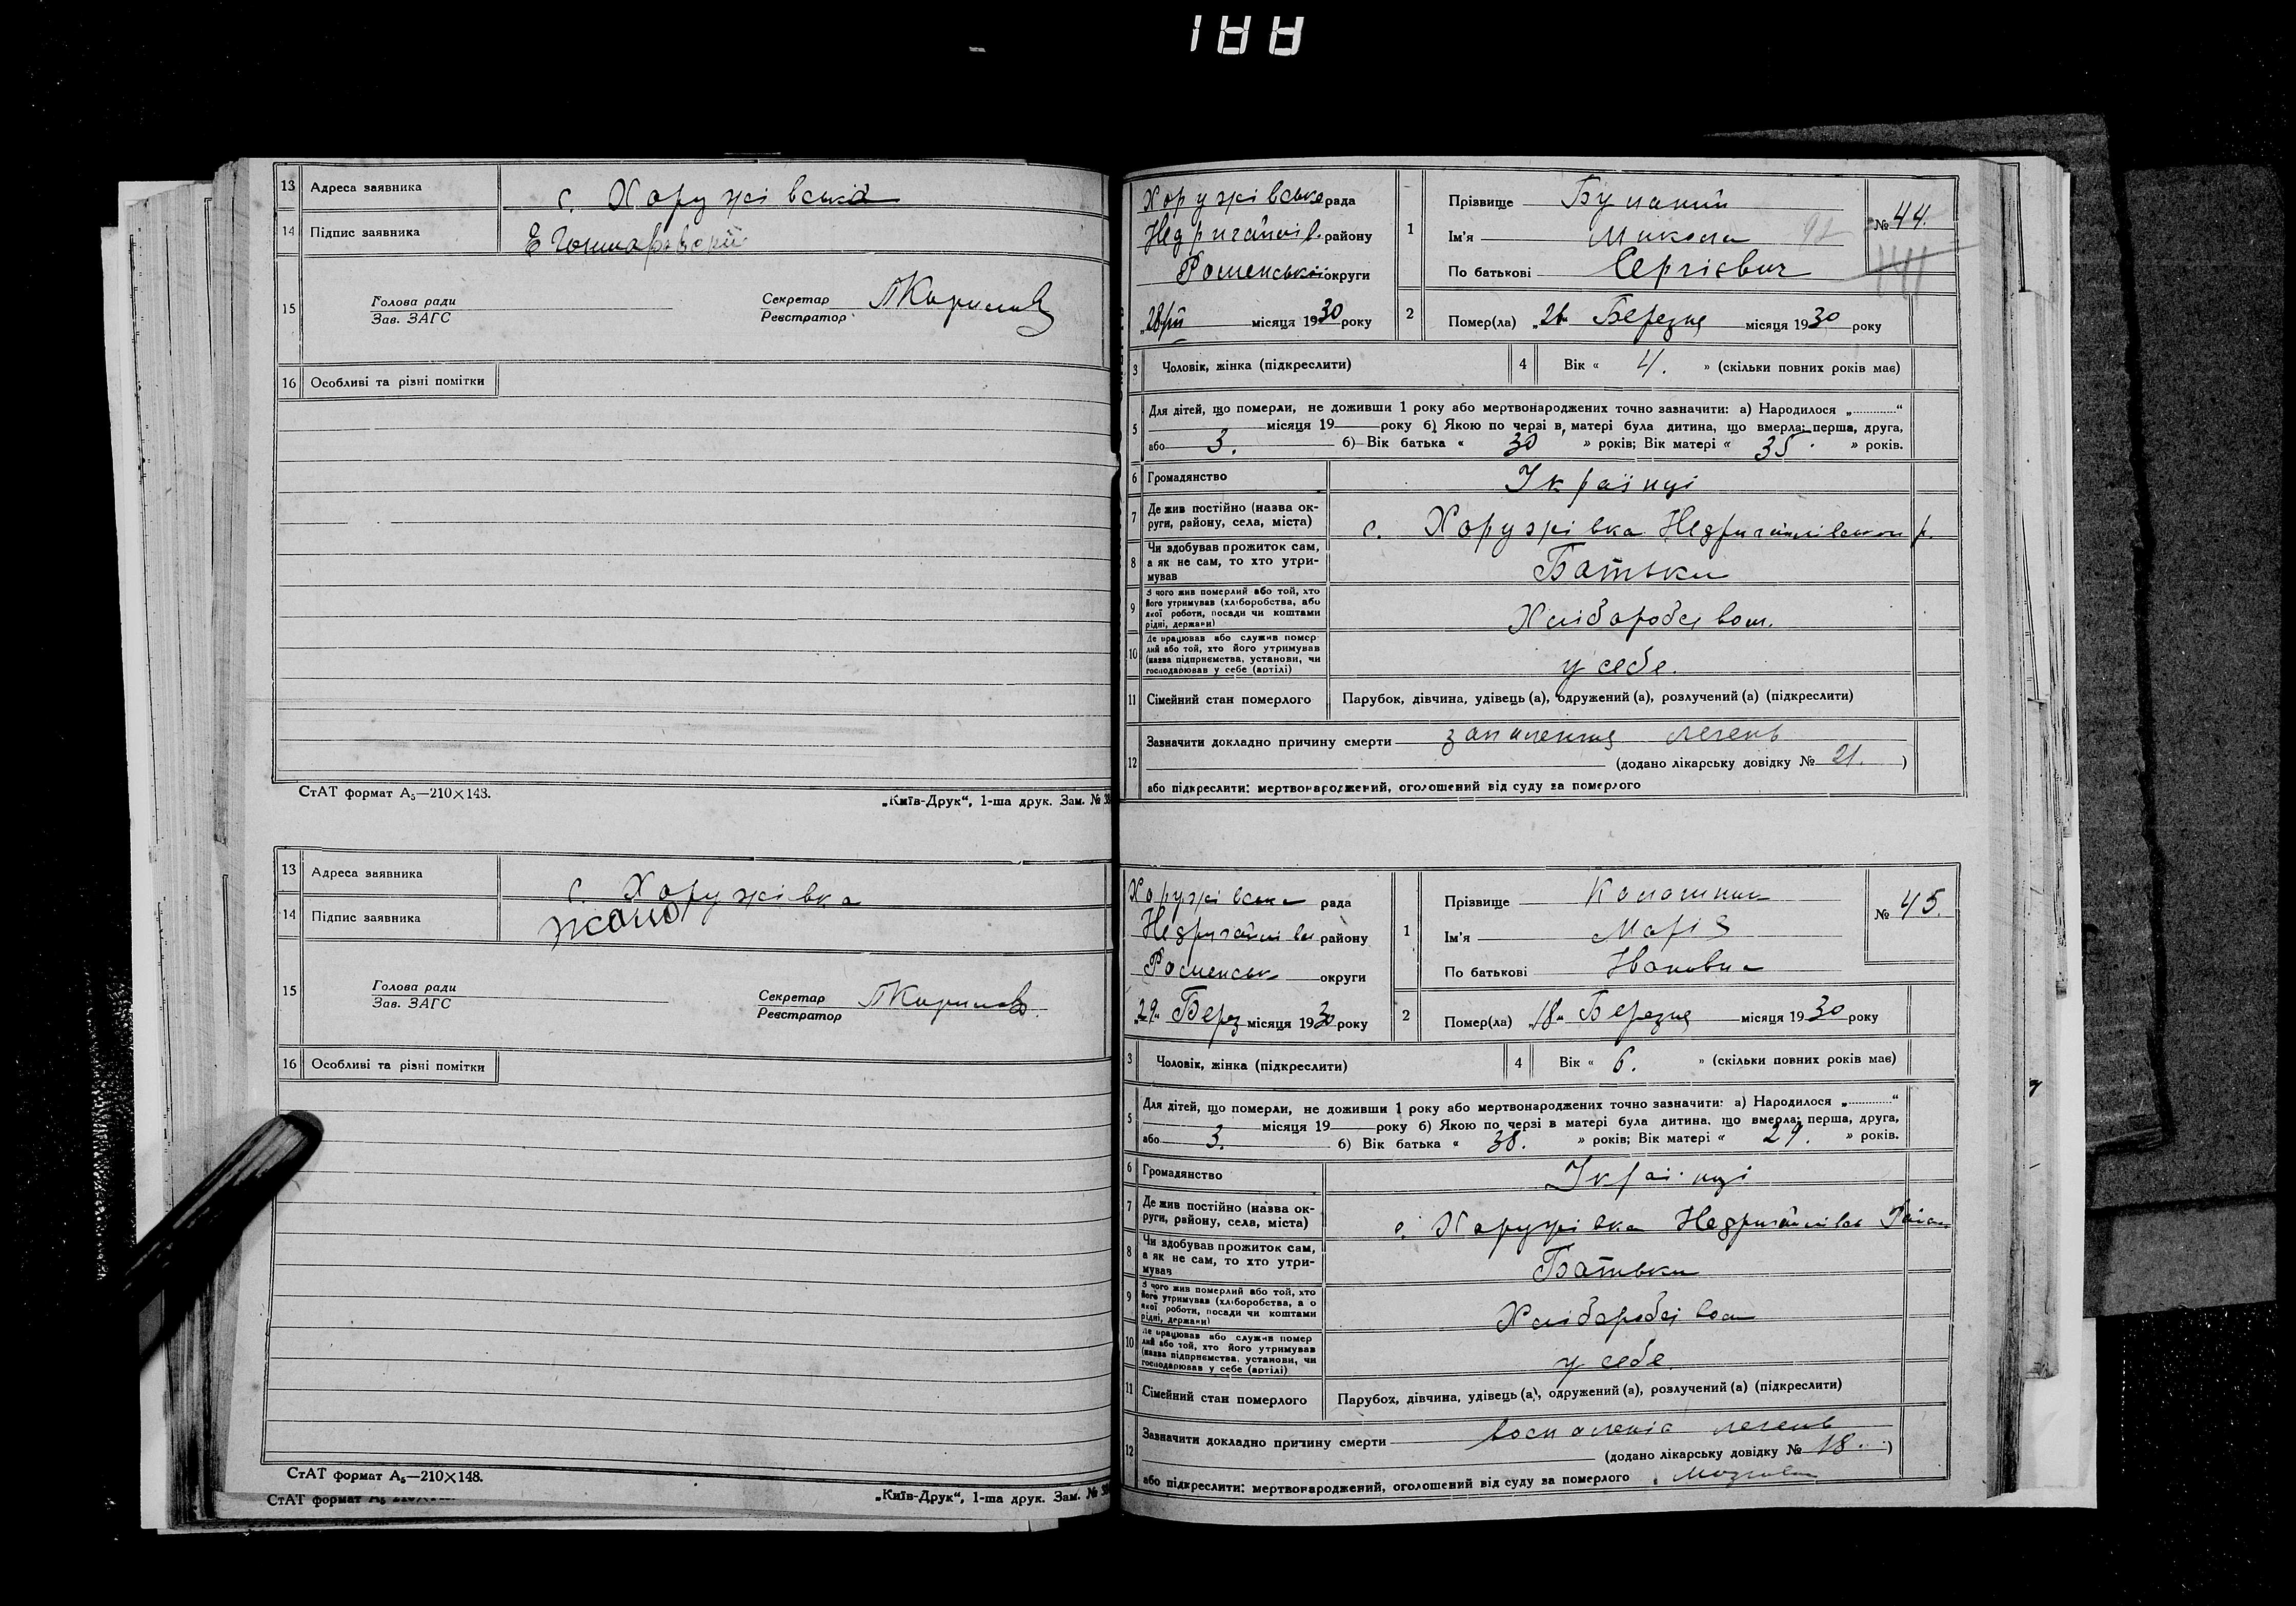 188
13 Адреса заявника с. Хоружівська
14 Підпис заявника
15 Голова ради Зав. ЗАГС Секретар Реєстратор
16 Особливі та різні помітки
СтАТ формат А₅—210×148.
„Київ-Друк“, 1-ша друк. Зам. №
13 Адреса заявника с. Хоружівка
14 Підпис заявника
15 Голова ради Зав. ЗАГС Секретар Реєстратор
16 Особливі та різні помітки
СтАТ формат А₅—210×148.
СтАТ формат
„Київ-Друк“, 1-ша друк. Зам. №
Хоружівська рада
району
Роменської округи
„28/III місяця 1930 року
1 Прізвище
Ім'я Микола
По батькові Сергієвич
№ 44.
141
2 Помер(ла) Березня місяця 1930 року
3 Чоловік, жінка (підкреслити) 4 Вік « 4. » (скільки повних років має)
5 Для дітей, що померли, не доживши 1 року або мертвонароджених точно зазначити: а) Народилося „............“
місяця 19 року б) Якою по черзі в матері була дитина, що вмерла: перша, друга,
або 3. б) Вік батька « 30 » років; Вік матері « 35 » років.
6 Громадянство Українці
7 Де жив постійно (назва округи, району, села, міста) с. Хоружівка Недригайлівськ р.
8 Чи здобував прожиток сам, а як не сам, то хто утримував Батьки
9 З чого жив померлий або той, хто його утримував (хліборобства, або якої роботи, посади чи коштами рідні, держави) Хліборобством.
10 Де працював або служив померлий або той, хто його утримував (назва підприємства, установи, чи господарював у себе (артілі) у себе.
11 Сімейний стан померлого Парубок, дівчина, удівець (а), одружений (а), розлучений (а) (підкреслити)
12 Зазначити докладно причину смерти запалення легень
(додано лікарську довідку № 21. )
або підкреслити: мертвонароджений, оголошений від суду за померлого
Хоружівська рада
району
Роменськ округи
„29“ Берез місяця 1930 року
1 Прізвище
Ім'я Марія
По батькові Івановна
№ 45.
2 Помер(ла) „18“ Березня місяця 1930 року
3 Чоловік, жінка (підкреслити) 4 Вік « 6. » (скільки повних років має)
5 Для дітей, що померли, не доживши 1 року або мертвонароджених точно зазначити: а) Народилося „............“
місяця 19 року б) Якою по черзі в матері була дитина, що вмерла: перша, друга,
або 3. б) Вік батька « 38. » років; Вік матері « 29. » років.
6 Громадянство Українці
7 Де жив постійно (назва округи, району, села, міста) с. Хоружівка Недригайлівськ
8 Чи здобував прожиток сам, а як не сам, то хто утримував Батьки
9 З чого жив померлий або той, хто його утримував (хліборобства, або якої роботи, посади чи коштами рідні, держави) Хліборобством
10 Де працював або служив померлий або той, хто його утримував (назва підприємства, установи, чи господарював у себе (артілі) у себе.
11 Сімейний стан померлого Парубок, дівчина, удівець (а), одружений (а), розлучений (а) (підкреслити)
12 Зазначити докладно причину смерти легень
(додано лікарську довідку № 18. )
або підкреслити: мертвонароджений, оголошений від суду за померлого